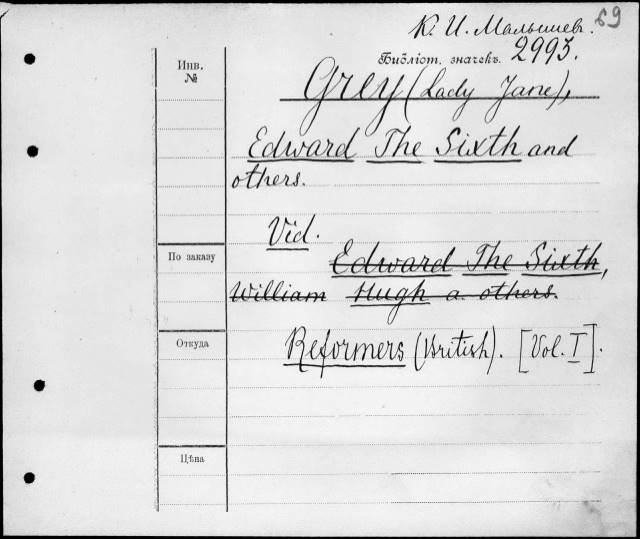 69
К. И. Малышев.
Библіот. значекъ. 2993.
Инв.
№
Grey (Lady Jane),
Edward The Sixth and
others.
Vid.
По заказу
Edward The Sixth,
William Hugh a. others.
Откуда
Reformers (British). [Vol. I].
Цѣна